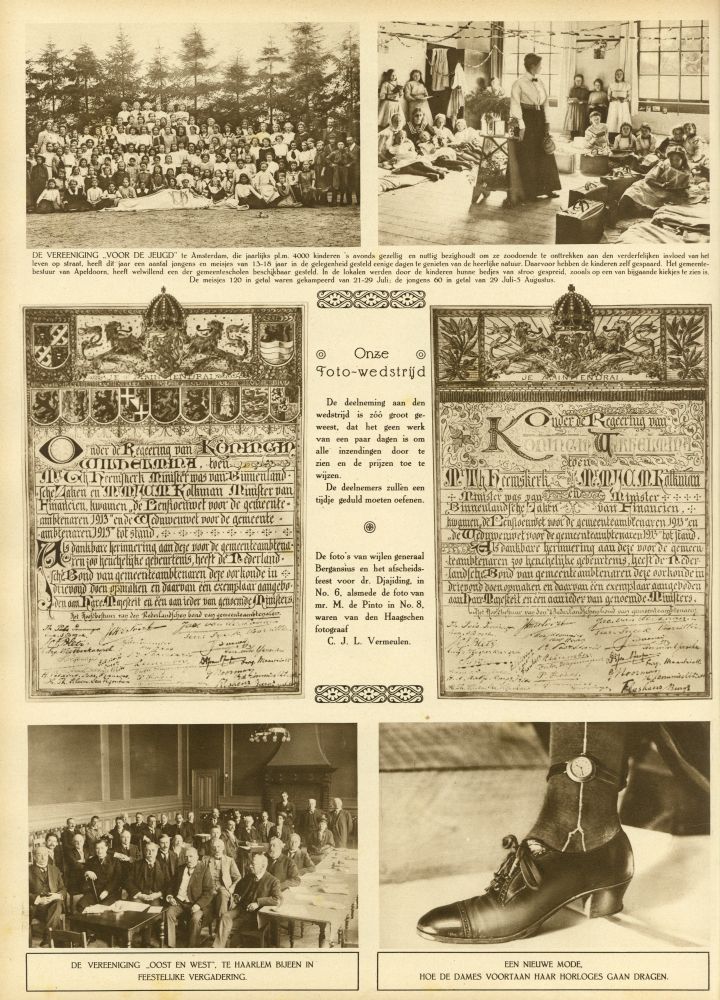 DE VEREENIGING „VOOR DE JEUGD" te Amsterdam, die jaarlijks pl.m. 4000 kinderen 's avonds gezellig en nuttig bezighoudt om ze zoodoende te onttrekken aan den verderfelijken invloed van het
leven op straat, heeft dit jaar een aantal jongens en meisjes van 13-18 jaar in de gelegenheid gesteld eenige dagen te genieten van de heerlijke natuur. Daarvoor hebben de kinderen zelf gespaard. Het gemeente-
bestuur van Apeldoorn, heeft welwillend een der gemeentescholen beschikbaar gesteld. In de lokalen werden door de kinderen hunne bedjes van stroo gespreid, zooals op een van bijgaande kiekjes te zien is.
De meisjes 120 in getal waren gekampeerd van 21-29 Juli; de jongens 60 in getal van 29 Juli-5 Augustus.
JE MAINTIENDRAI
Onder de Regeering van KONINGIN
WILHELMINA, toen
Mr. Th. Heemskerk Minister was van Binnenland-
sche Zaken en Mr. M.J.C.M. Kolkman Minister van
Financiën, kwamen de Pensioenwet voor de gemeente-
ambtenaren 1913 en de Weduwenwet voor de gemeente-
ambtenaren 1913 tot stand
Als dankbare herinnering aan deze voor de gemeenteambtena-
ren zoo heuchelijke gebeurtenis, heeft de Nederland-
sche Bond van gemeenteambtenaren deze oorkonde in
drievoud doen opmaken en daarvan een exemplaar aangebo-
den aan Hare Majesteit en één aan ieder van genoemde Ministers.
Het Hoofdbestuur van den Nederlandschen bond van gemeenteambtenaren
Onze
Foto-wedstrijd
De deelneming aan den
wedstrijd is zóó groot ge-
weest, dat het geen werk
van een paar dagen is om
alle inzendingen door te
zien en de prijzen toe te
wijzen.
De deelnemers zullen een
tijdje geduld moeten oefenen.
De foto's van wijlen generaal
Bergansius en het afscheids-
feest voor dr. Djajding, in
No. 6, alsmede de foto van
mr. M. de Pinto in No. 8,
waren van den Haagschen
fotograaf
C. J. L. Vermeulen.
JE MAINTIENDRAI
Onder de Regeering van
KONINGIN WILHELMINA
toen
Mr. Th. Heemskerk en Mr. M.J.C.M. Kolkman
Minister was van Minister
Binnenlandsche Zaken van Financiën,
kwamen de Pensioenwet voor de gemeenteambtenaren 1913 en
de Weduwenwet voor de gemeenteambtenaren 1913 tot stand.
Als dankbare herinnering aan deze voor de gemeen-
teambtenaren zoo heuchelijke gebeurtenis, heeft de Neder-
landsche Bond van gemeenteambtenaren deze oorkonde in
drievoud doen opmaken en daarvan één exemplaar aangeboden
aan Hare Majesteit en één aan ieder van genoemde Ministers.
Het Hoofdbestuur van den Nederlandschen bond van gemeenteambtenaren
DE VEREENIGING „OOST EN WEST", TE HAARLEM BIJEEN IN
FEESTELIJKE VERGADERING.
EEN NIEUWE MODE,
HOE DE DAMES VOORTAAN HAAR HORLOGES GAAN DRAGEN.